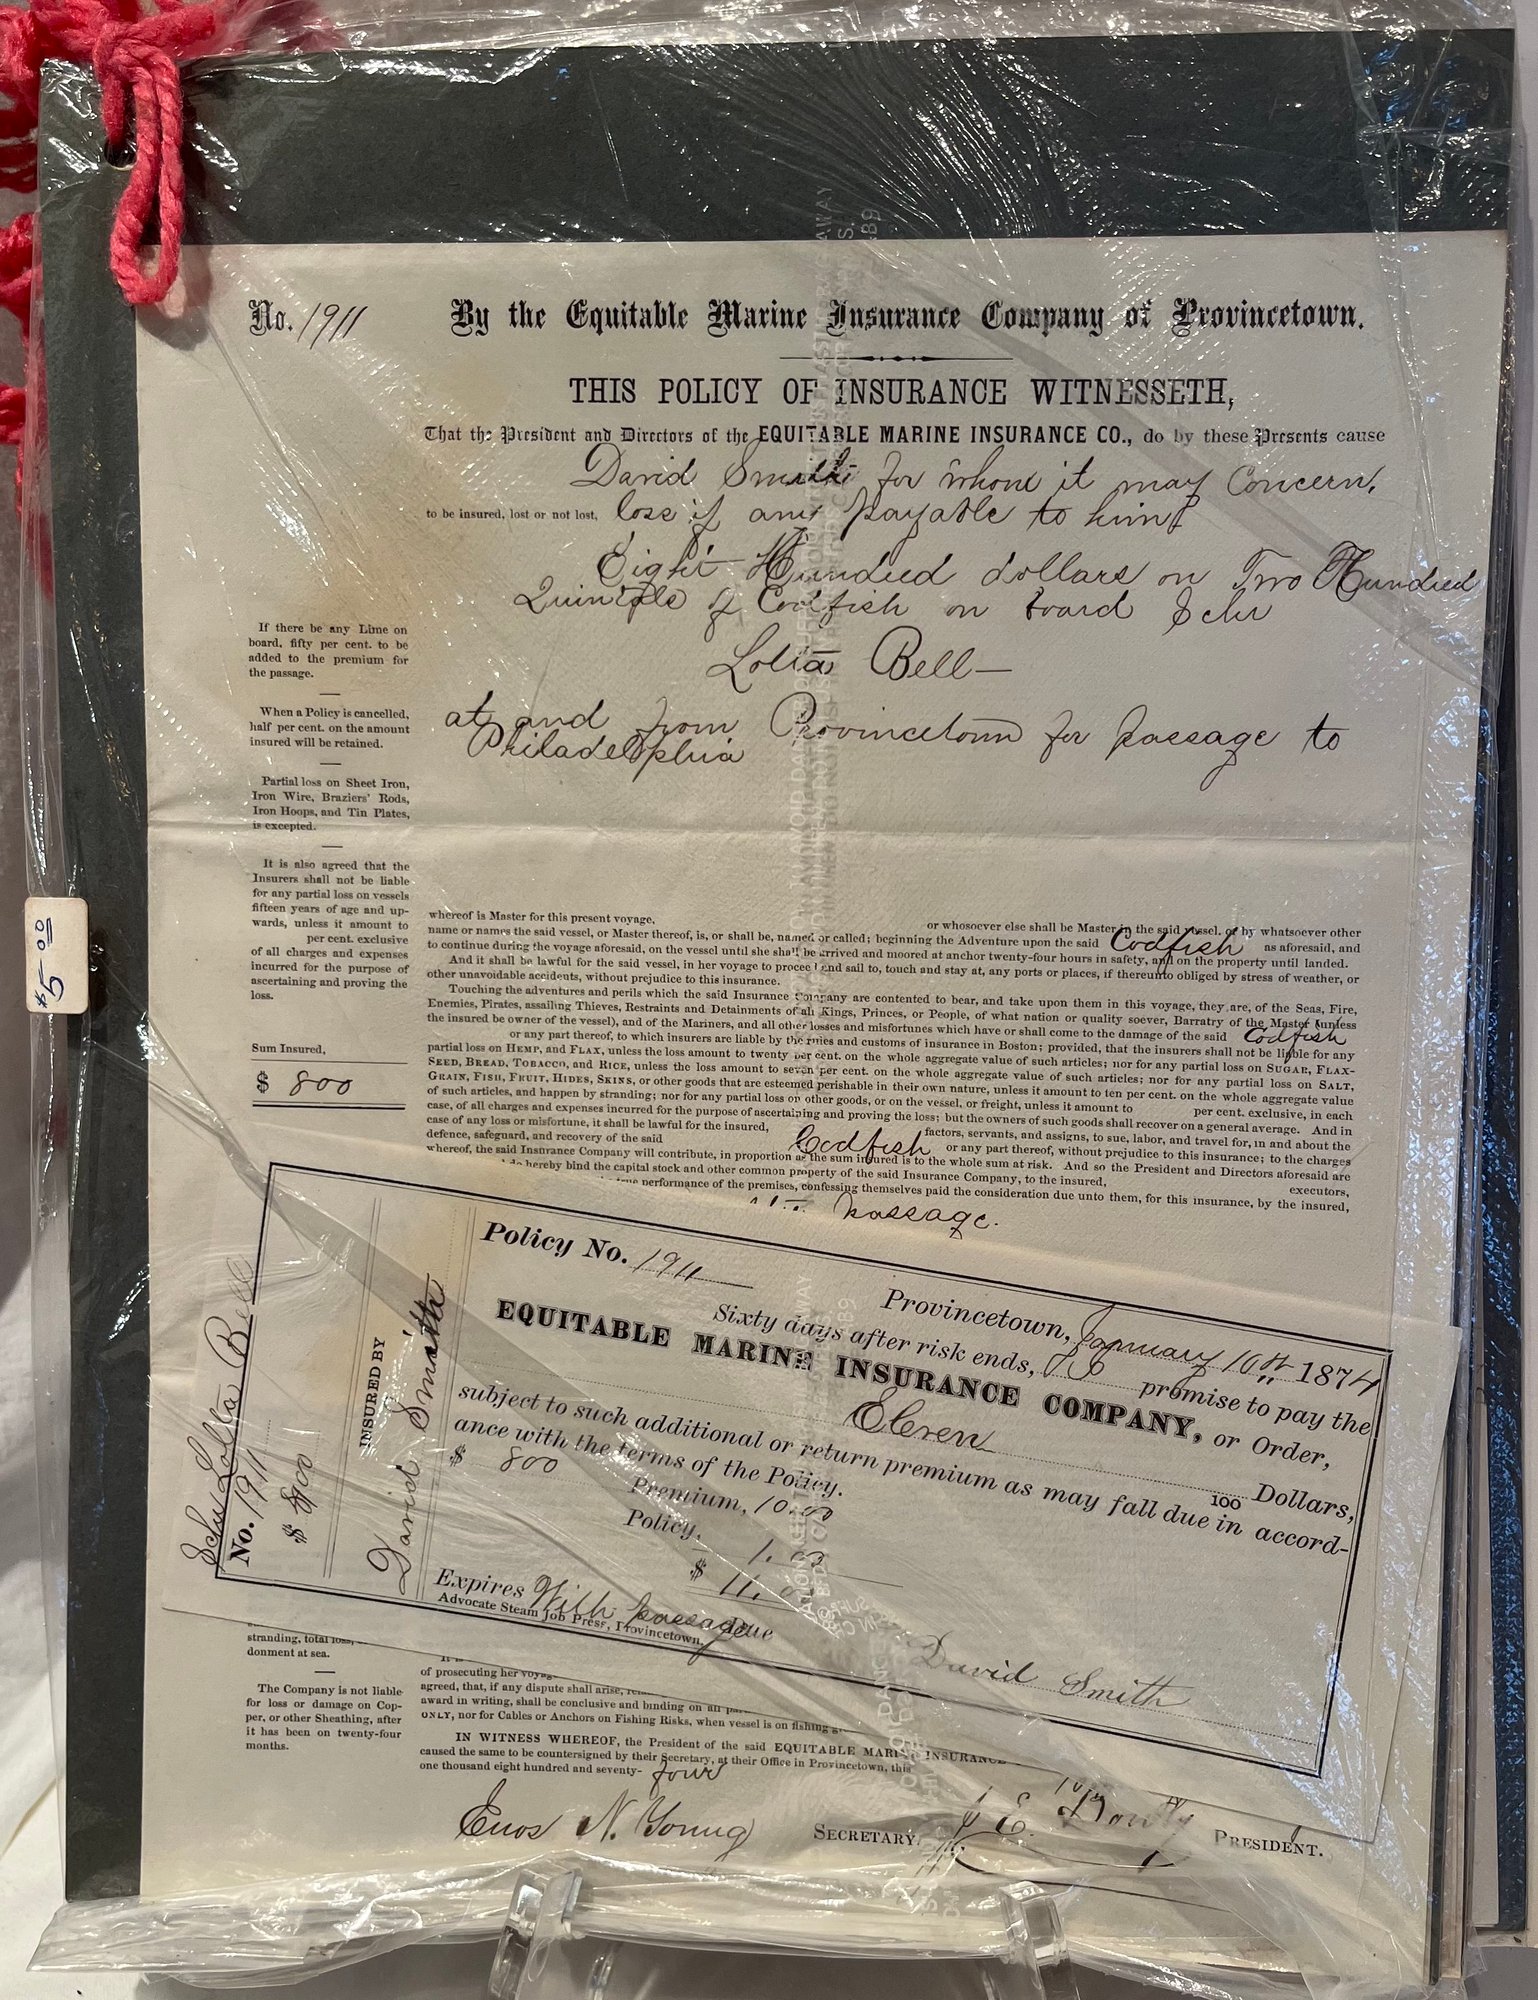 No. 1911
By the Equitable Marine Insurance Company of Provincetown.
THIS POLICY OF INSURANCE WITNESSETH,
That the President and Directors of the EQUITABLE MARINE INSURANCE CO., do by these Presents cause
David Smith for whom it may Concern,
to be insured, lost or not lost, loss if any payable to him
Eight Hundred dollars on Two Hundred
Quintals of Codfish on board Schr
Lotta Bell—
at and from Provincetown for passage to
Philadelphia
If there be any Lime on
board, fifty per cent. to be
added to the premium for
the passage.
When a Policy is cancelled,
half per cent. on the amount
insured will be retained.
Partial loss on Sheet Iron,
Iron Wire, Braziers' Rods,
Iron Hoops, and Tin Plates,
is excepted.
It is also agreed that the
Insurers shall not be liable
for any partial loss on vessels
fifteen years of age and up-
wards, unless it amount to
per cent. exclusive
of all charges and expenses
incurred for the purpose of
ascertaining and proving the
loss.
Sum Insured,
$ 800
$5.00
whereof is Master for this present voyage, or whosoever else shall be Master in the said vessel, or by whatsoever other
name or names the said vessel, or Master thereof, is, or shall be, named or called; beginning the Adventure upon the said Codfish as aforesaid, and
to continue during the voyage aforesaid, on the vessel until she shall be arrived and moored at anchor twenty-four hours in safety, and on the property until landed.
And it shall be lawful for the said vessel, in her voyage to proceed and sail to, touch and stay at, any ports or places, if thereunto obliged by stress of weather, or
other unavoidable accidents, without prejudice to this insurance.
Touching the adventures and perils which the said Insurance Company are contented to bear, and take upon them in this voyage, they are, of the Seas, Fire,
Enemies, Pirates, assailing Thieves, Restraints and Detainments of all Kings, Princes, or People, of what nation or quality soever, Barratry of the Master (unless
the insured be owner of the vessel), and of the Mariners, and all other losses and misfortunes which have or shall come to the damage of the said Codfish
or any part thereof, to which insurers are liable by the rules and customs of insurance in Boston; provided, that the insurers shall not be liable for any
partial loss on HEMP, and FLAX, unless the loss amount to twenty per cent. on the whole aggregate value of such articles; nor for any partial loss on SUGAR, FLAX-
SEED, BREAD, TOBACCO, and RICE, unless the loss amount to seven per cent. on the whole aggregate value of such articles; nor for any partial loss on SALT,
GRAIN, FISH, FRUIT, HIDES, SKINS, or other goods that are esteemed perishable in their own nature, unless it amount to ten per cent. on the whole aggregate value
of such articles, and happen by stranding; nor for any partial loss on other goods, or on the vessel, or freight, unless it amount to per cent. exclusive, in each
case, of all charges and expenses incurred for the purpose of ascertaining and proving the loss; but the owners of such goods shall recover on a general average. And in
case of any loss or misfortune, it shall be lawful for the insured, factors, servants, and assigns, to sue, labor, and travel for, in and about the
defence, safeguard, and recovery of the said Codfish or any part thereof, without prejudice to this insurance; to the charges
whereof, the said Insurance Company will contribute, in proportion as the sum insured is to the whole sum at risk. And so the President and Directors aforesaid are
do hereby bind the capital stock and other common property of the said Insurance Company, to the insured, executors,
true performance of the premises, confessing themselves paid the consideration due unto them, for this insurance, by the insured,
passage.
Schr Lotta Bell
No. 1911
$ 800
INSURED BY
David Smith
Policy No. 1911
Provincetown, January 10th 1874
Sixty days after risk ends, I promise to pay the
EQUITABLE MARINE INSURANCE COMPANY, or Order,
Eleven 100 Dollars,
subject to such additional or return premium as may fall due in accord-
ance with the terms of the Policy.
$ 800
Premium, 10.00
Policy, 1.00
$ 11.00
Expires With passage
Due
Advocate Steam Job Press, Provincetown.
David Smith
stranding, total loss,
donment at sea.
The Company is not liable
for loss or damage on Cop-
per, or other Sheathing, after
it has been on twenty-four
months.
of prosecuting her voyage
agreed, that, if any dispute shall arise,
award in writing, shall be conclusive and binding on all
ONLY, nor for Cables or Anchors on Fishing Risks, when vessel is on fishing
IN WITNESS WHEREOF, the President of the said EQUITABLE MARINE INSURANCE
caused the same to be countersigned by their Secretary, at their Office in Provincetown, this
one thousand eight hundred and seventy- four
Enos N. Young SECRETARY. PRESIDENT.